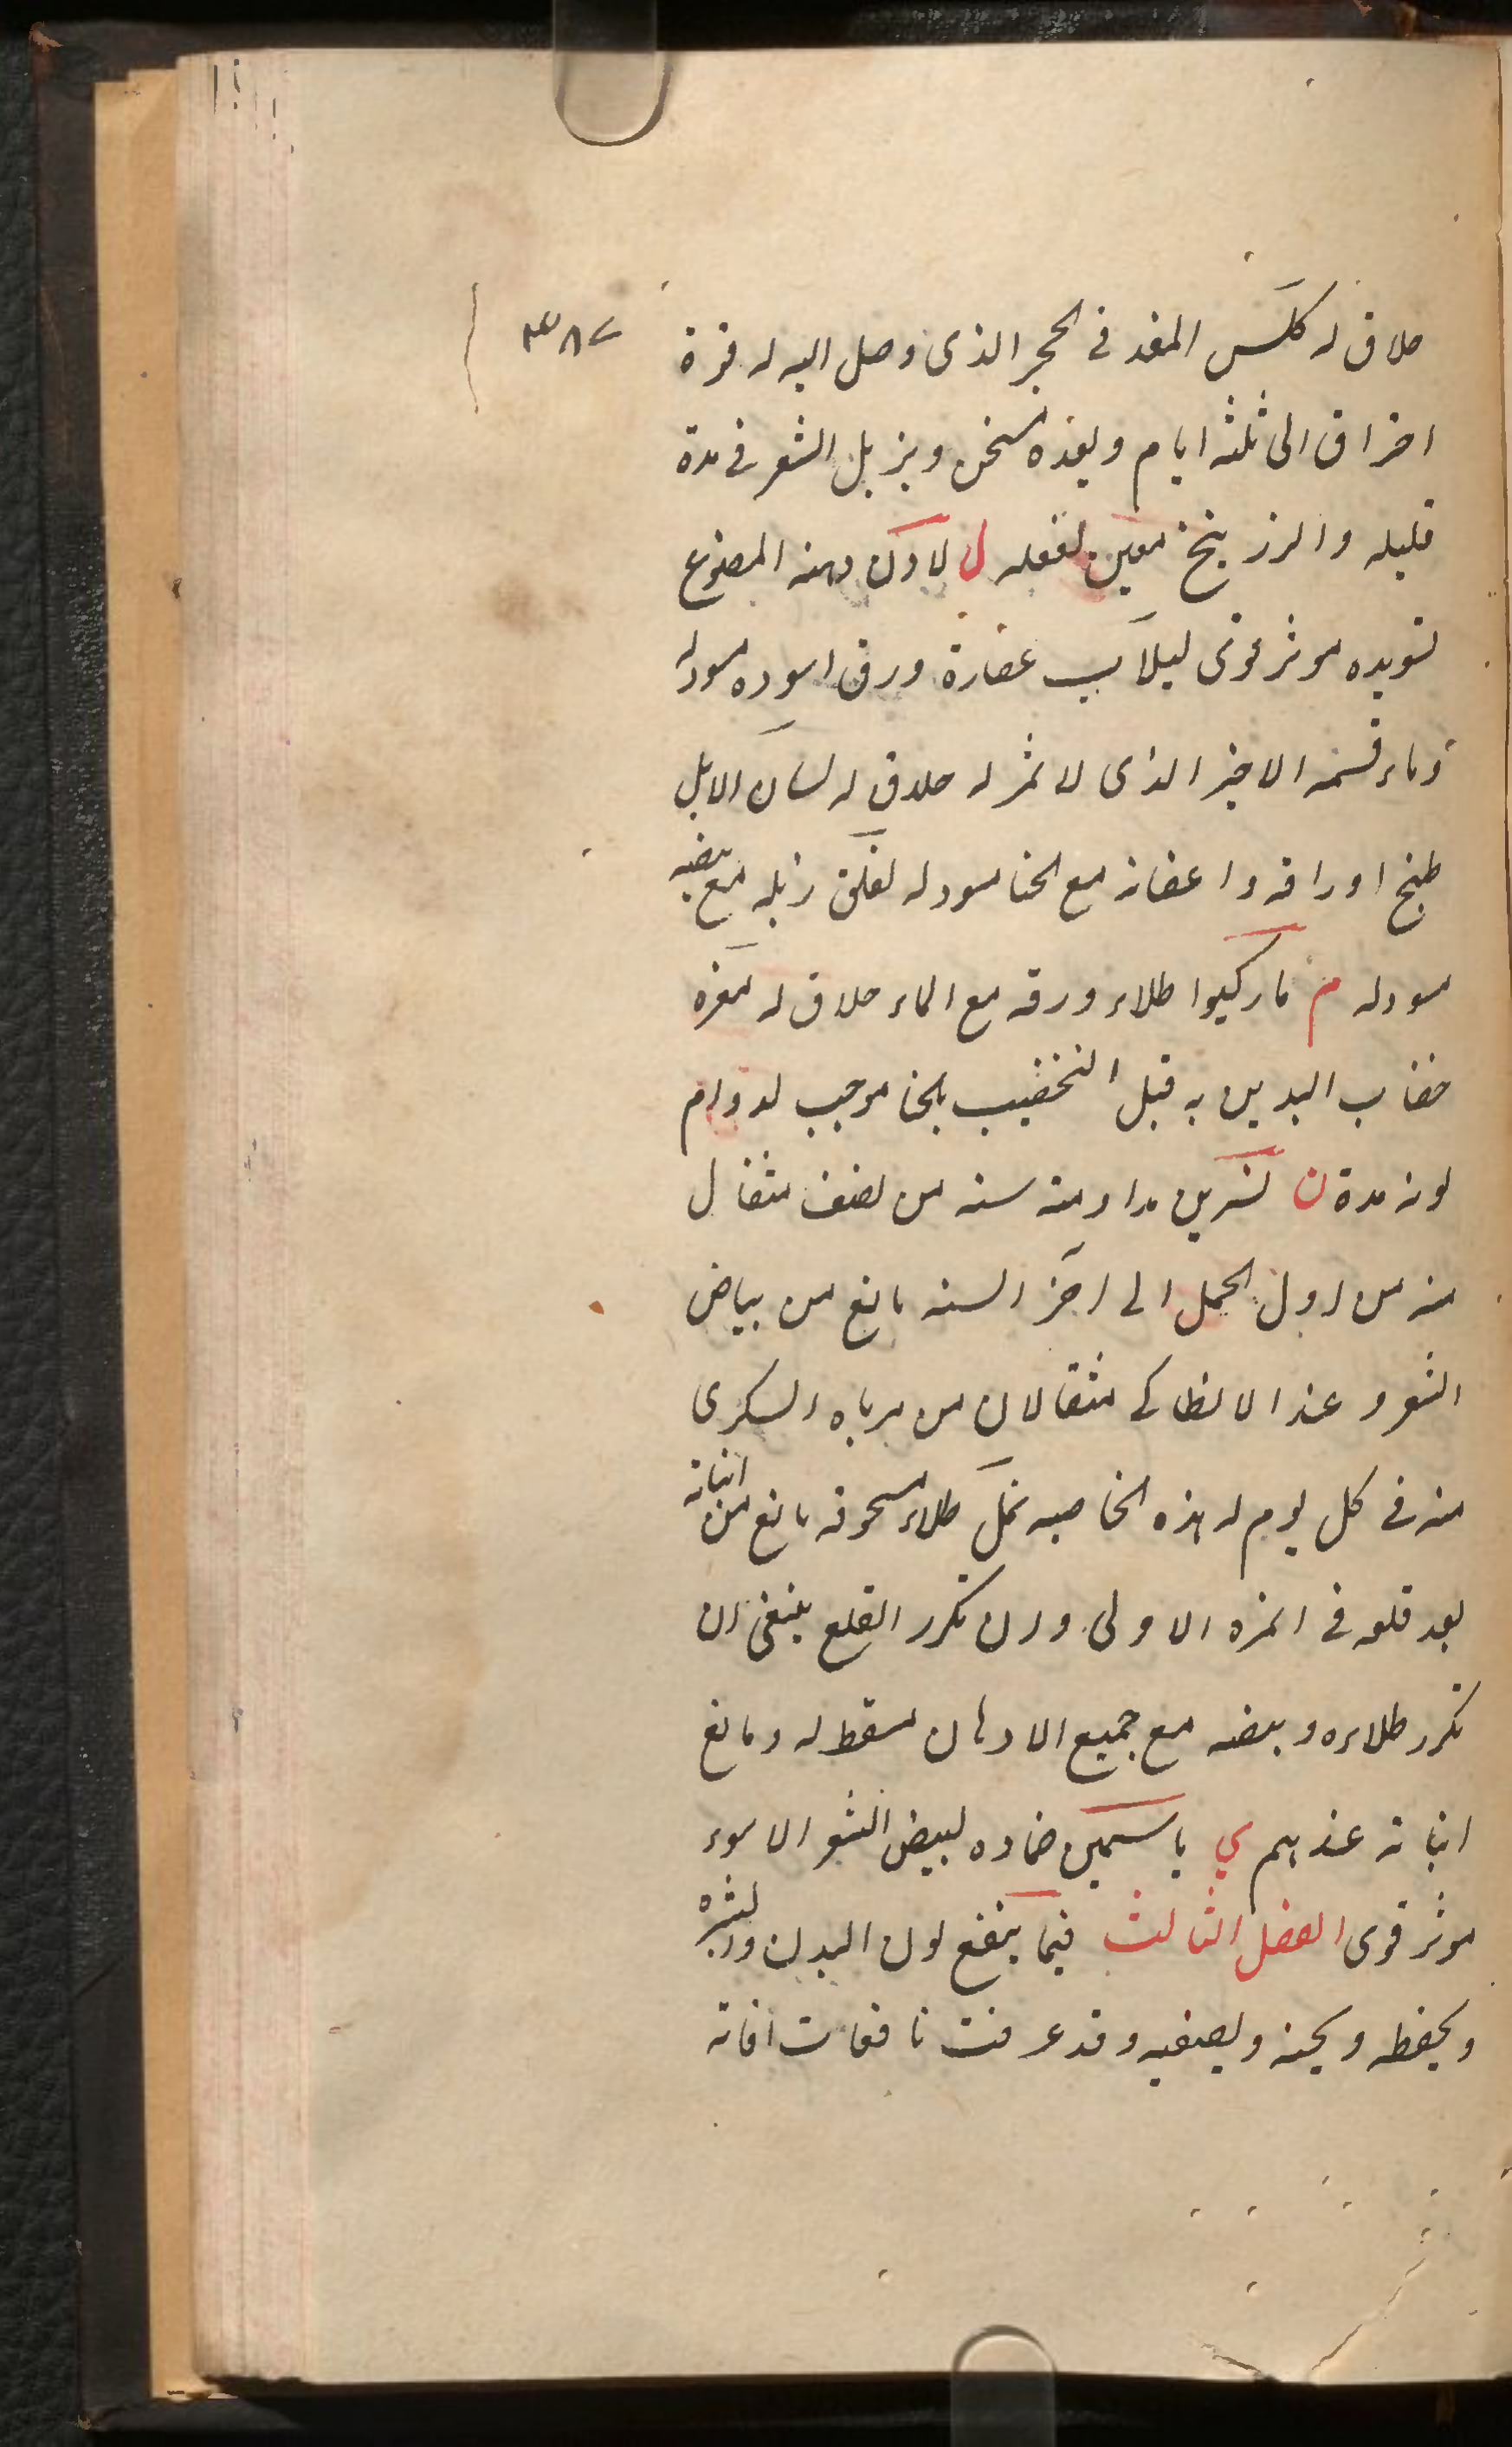 حلاق له كلس المغد فى الحجر الذى وصل اليه له قوة
احراق الى ثلثه ايام وبعده مسخن ويزيل الشعر فى مدة
قليله والزرنيخ معين لفعله ل لادن دهنه المصنوع
تسويده موثر قوى ليلاب عصارة ورق اسوده مسود له
وماء قسمه الاخير الذى لا ثمر له حلاق له لسان الابل
طبخ اوراقه واغصانه مع الحنا مسود له لقلق زبله مع بيضه
مسود له م ماركيوا طلاء ورقه مع الماء حلاق له مغره
خضاب اليدين به قبل التخضيب بالحنا موجب لدوام
لونه مدة ن نسرين مداومته سنه من نصف مثقال
منه من اول الحمل الى اخر السنه مانع من بياض
الشعر وعند الانطاكى مثقالان من مرباه السكرى
منه فى كل يوم له هذه الخاصيه نمل طلاء مسحوقه مانع من انباته
بعد قلعه فى المره الاولى وان تكرر القلع ينبغى ان
تكرر طلاءه وبيضه مع جميع الادهان مسقط له ومانع
انباته عندهم ي ياسمين ضماده لبيض الشعر الاسود
موثر قوى الفصل الثالث فيما ينفع لون البدن وبشره
ويحفظه ويحسنه ويصفيه وقد عرفت نافعات افاته